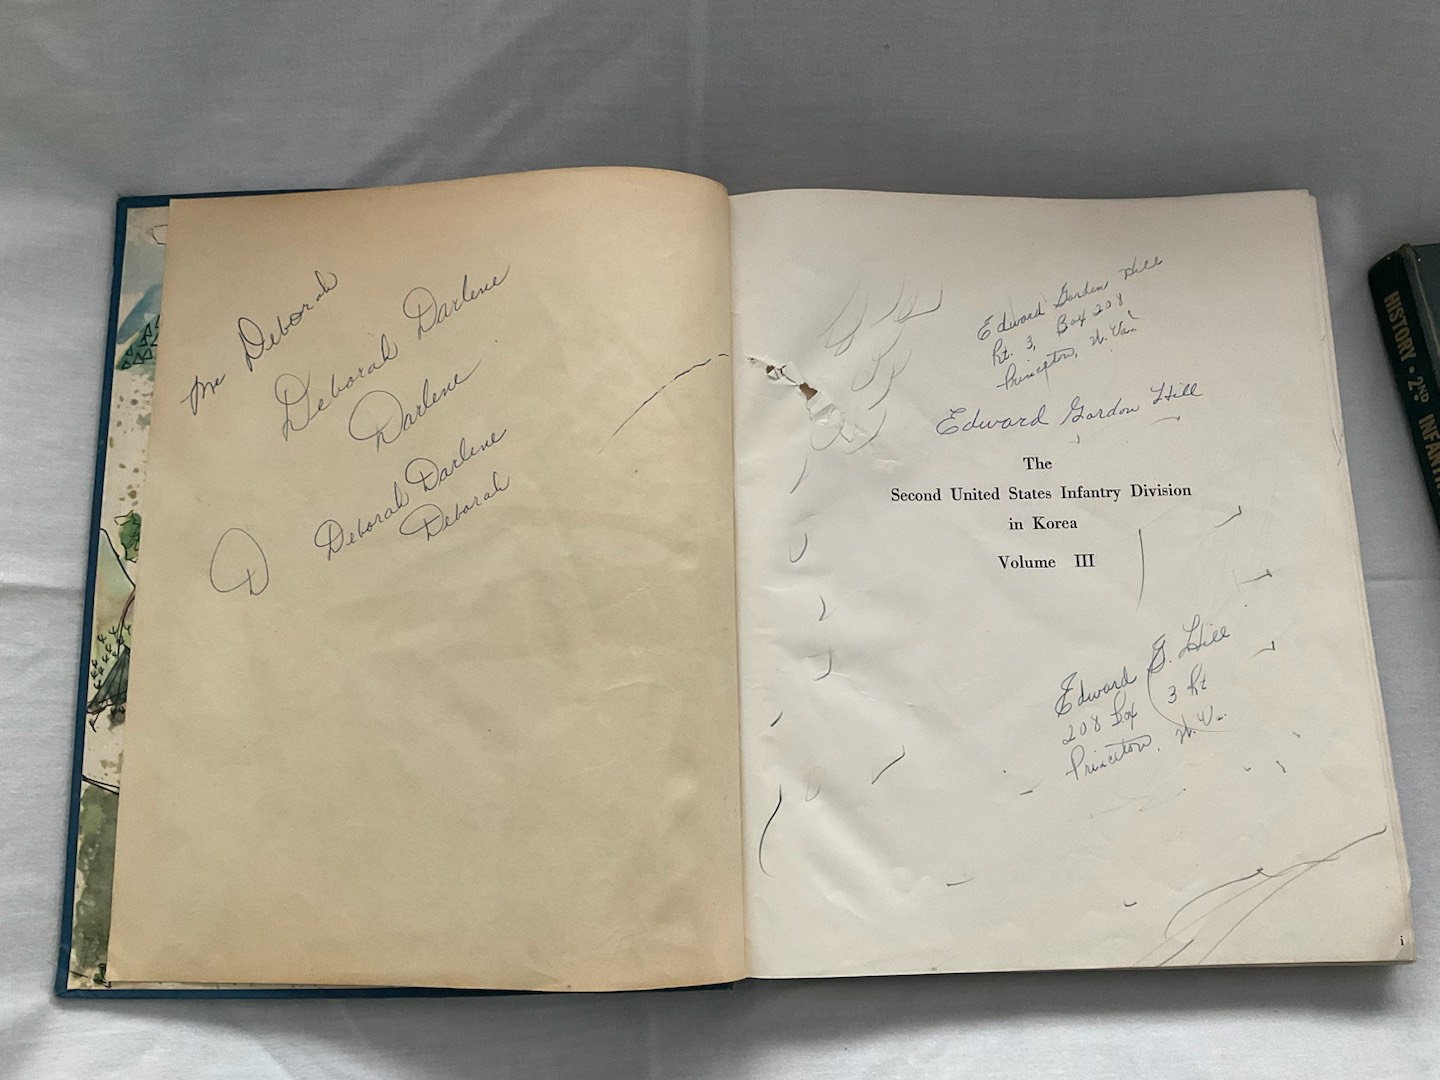 me Deborah
Deborah Darlene
Darlene
Deborah Darlene
Deborah
D
Edward Gordon Hill
Rt. 3, Box 208
Princeton, W. Va.
Edward Gordon Hill
The
Second United States Infantry Division
in Korea
Volume III
Edward G. Hill
208 Box 3 Rt
Princeton, W. Va.
i
HISTORY • 2ND INFANTR